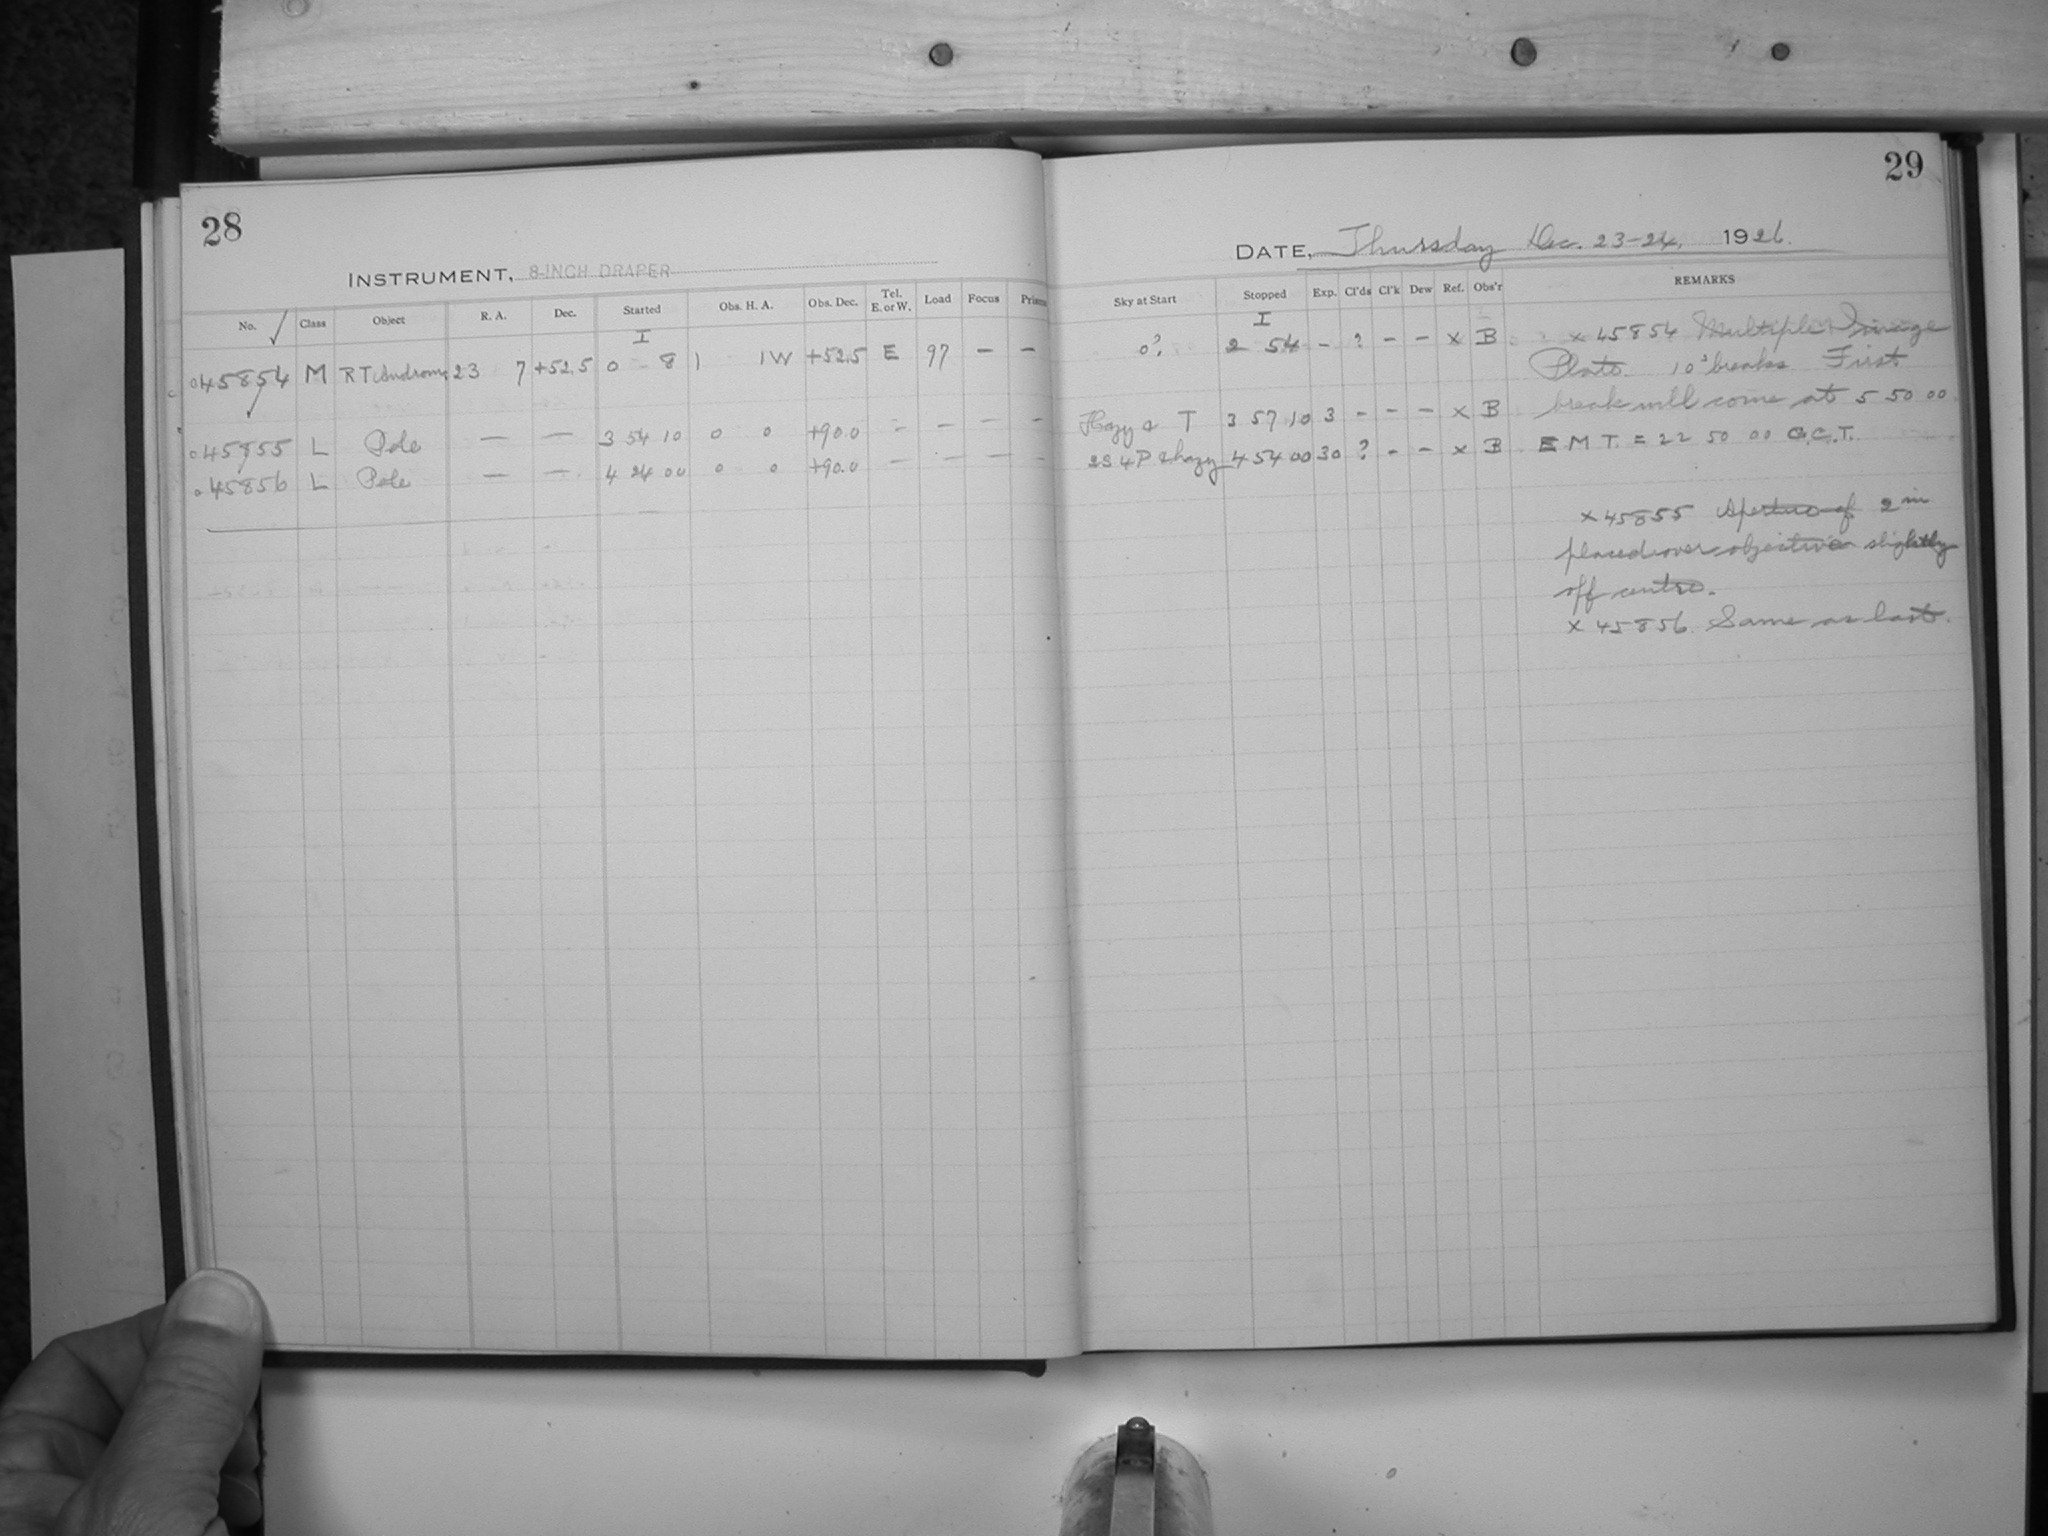 28
INSTRUMENT, 8-INCH DRAPER
No. Class Object R. A. Dec. Started Obs. H. A. Obs. Dec. Tel. E. or W. Load Focus Prism
I
45854 M RT Androm. 23 7 +52.5 0 8 1 1W +52.5 E 97 — —
45855 L Pole — — 3 54 10 0 0 +90.0 — — — —
45856 L Pole — — 4 24 00 0 0 +90.0 — — — —
29
DATE, Thursday Dec. 23-24, 1926.
Sky at Start Stopped Exp. Cl'ds Cl'k Dew Ref. Obs'r REMARKS
I
0? 2 54 – ? – – x B
Hazy & T 3 57 10 3 – – – x B
4 54 00 30 ? – – x B
x 45854 Multiple Image
Plate. 10s breaks First
break will come at 5 50 00
E M T. = 22 50 00 G.C.T.
x 45855 Aperture of 2 in
placed over objective slightly
off centre.
x 45856. Same as last.